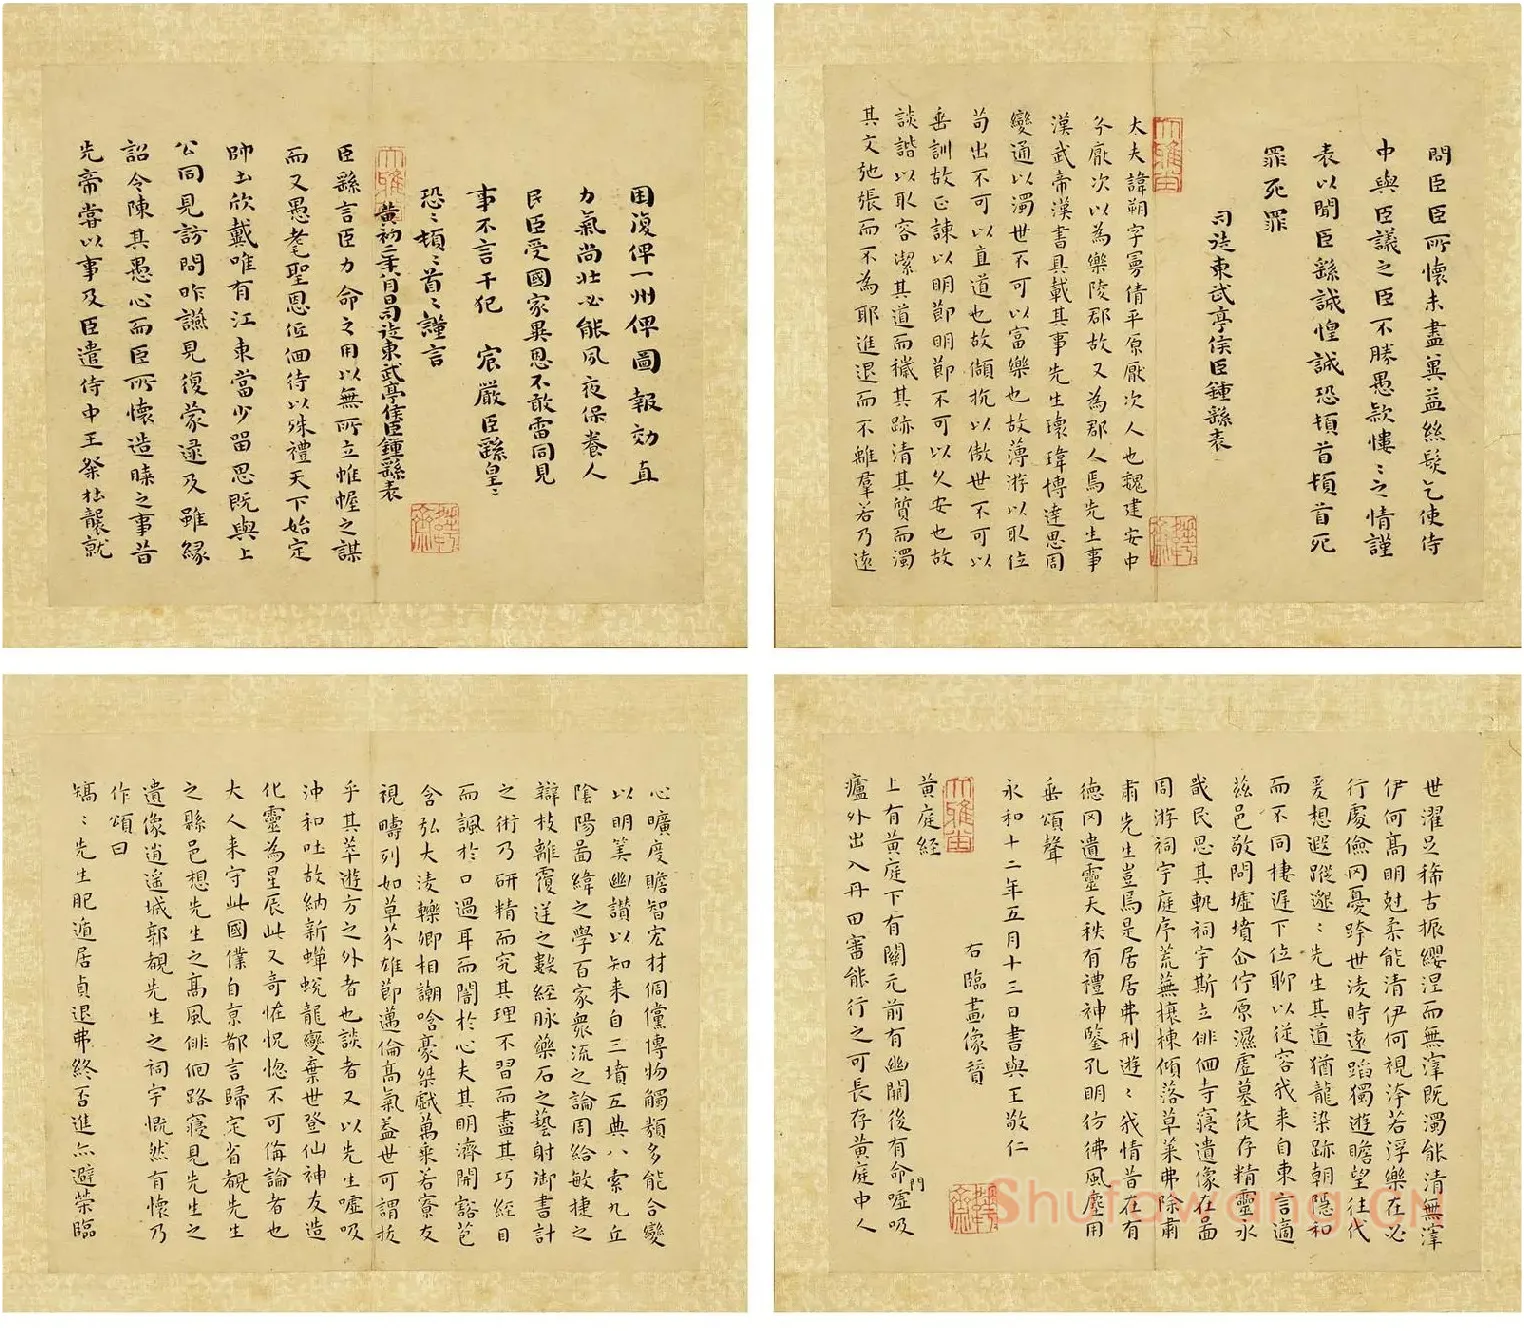 田復俾一州俾圖報効直
力氣尚壯必能夙夜保養人
民臣受國家異恩不敢雷同見
事不言干犯 宸嚴臣繇皇〻
恐〻頓〻首〻謹言
黃初二年八月日司徒東武亭侯臣鍾繇表
臣繇言臣力命之用以無所立帷幄之謀
而又愚耄聖恩低佪待以殊禮天下始定
帥土欣戴唯有江東當少留思既與上
公同見訪問昨讌見復蒙逮及雖緣
詔令陳其愚心而臣所懷造膝之事昔
先帝嘗以事及臣遣侍中王粲杜襲就
問臣臣所懷未盡兾益絲髮乞使侍
中與臣議之臣不勝愚欵慺〻之情謹
表以聞臣繇誠惶誠恐頓首頓首死
罪死罪
司徒東武亭侯臣鍾繇表
大雅
大夫諱朔字曼倩平原厭次人也魏建安中
分厭次以為樂陵郡故又為郡人焉先生事
漢武帝漢書具載其事先生瓌瑋博達思周
變通以濁世不可以富樂也故薄游以取位
苟出不可以直道也故頡抗以傲世傲世不可以
垂訓故正諫以明節明節不可以久安也故
談諧以取容潔其道而穢其跡清其質而濁
其文弛張而不為耶進退而不離羣若乃遠
心曠度贍智宏材倜儻博物觸類多能合變
以明筭幽讚以知来自三墳五典八索九丘
陰陽啚緯之學百家衆流之論周給敏捷之
辯枝離覆逆之數經脉藥石之藝射御書計
之術乃研精而究其理不習而盡其巧經目
而諷於口過耳而闇於心夫其明濟開豁苞
含弘大淩轢卿相謿哈豪桀戲萬乘若寮友
視疇列如草芥雄節邁倫高氣蓋世可謂拔
乎其萃遊方之外者也談者又以先生噓吸
沖和吐故納新蟬蛻龍變棄世登仙神友造
化靈為星辰此又奇怪怳惚不可備論者也
大人来守此國僕自京都言歸定省覩先生
之縣邑想先生之高風徘徊路寢見先生之
遺像逍遙城郭覩先生之祠宇慨然有懷乃
作頌曰
矯〻先生肥遁居貞退弗終否進亦避榮臨
世濯足稀古振纓涅而無滓既濁能清無滓
伊何高明尅柔能清伊何視洿若浮樂在必
行處儉罔憂跨世淩時遠蹈獨遊瞻望往代
爰想遐蹤邈〻先生其道猶龍染跡朝隱和
而不同棲遲下位聊以從容我来自東言適
茲邑敬問墟墳企佇原隰虛墓徒存精靈永
戢民思其軌祠宇斯立徘徊寺寢遺像在啚
周游祠宇庭序荒蕪榱棟傾落草萊弗除肅
肅先生豈焉是居居弗刑遊〻我情昔在有
德罔遺靈天秩有禮神鑒孔明彷彿風塵用
垂頌聲
永和十二年五月十三日書與王敬仁
右臨畫像贊
黃庭經
上有黃庭下有關元前有幽闕後有命門噓吸
廬外出入丹田審能行之可長存黃庭中人
Shufawang.CN